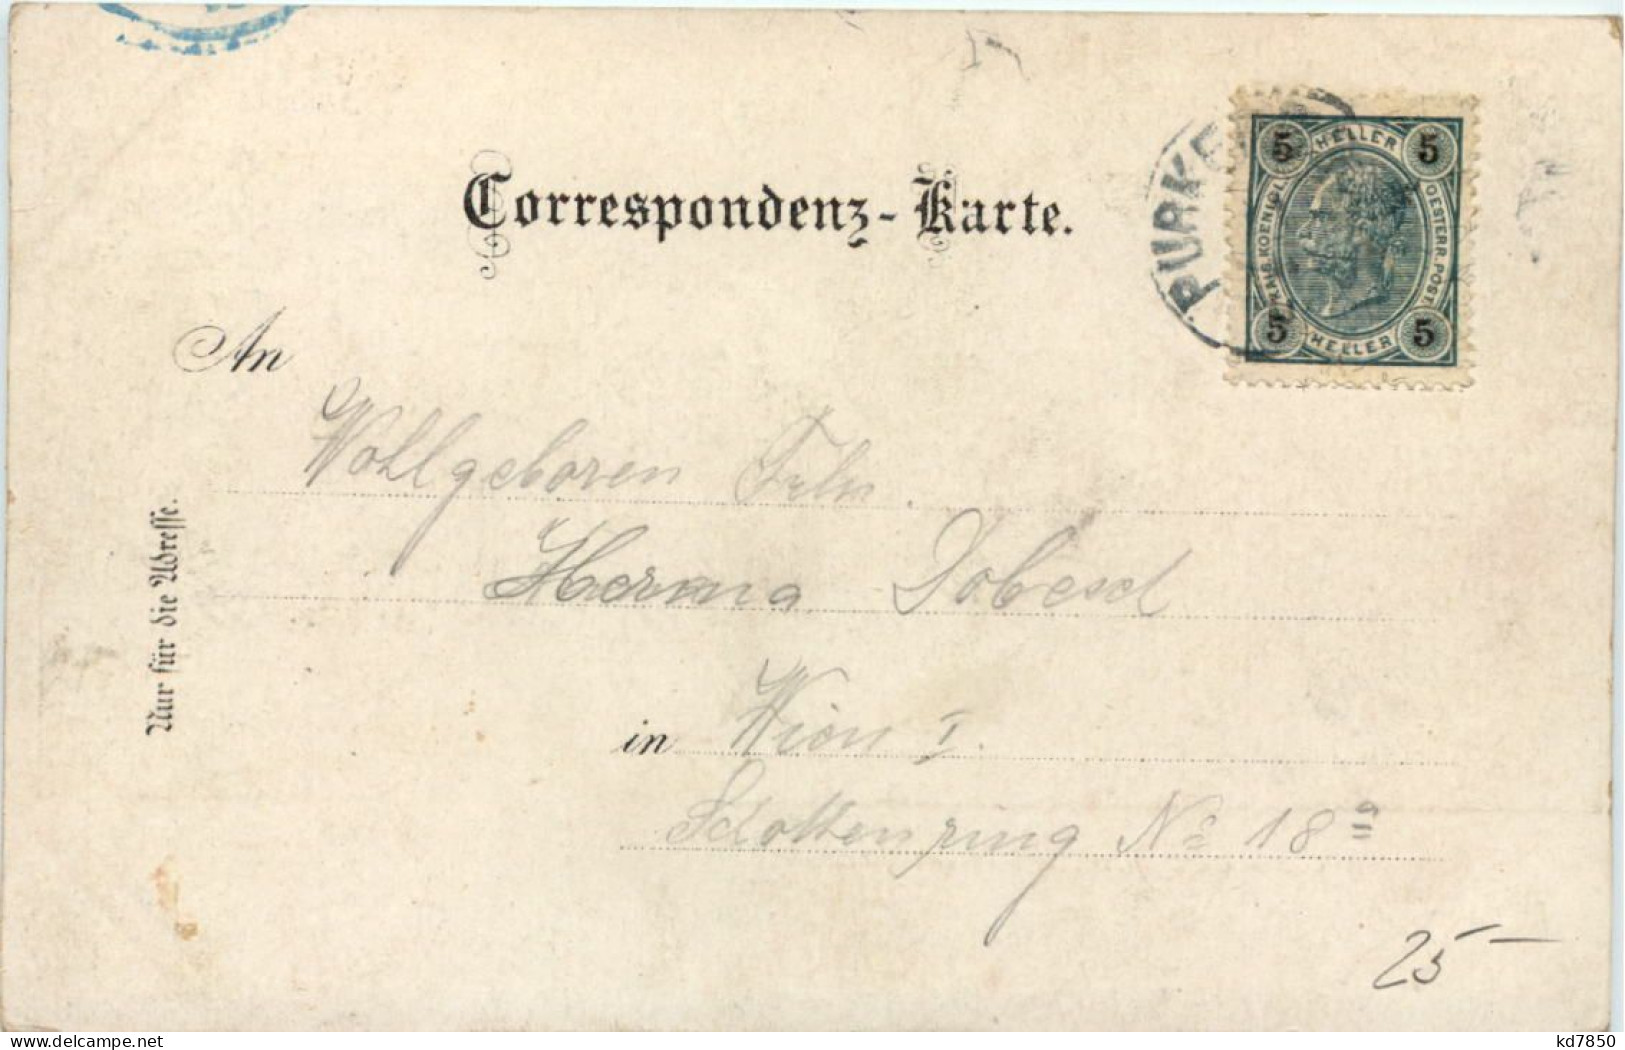 Correspondenz-Karte.
PURKE
5 HELLER 5
KAIS. KOENIGL.
OESTERR. POST.
5 HELLER 5
An
Wohlgeboren Frln.
Herma Dobesch
in Wien I.
Schottenring No 18
Nur für die Adresse.
25-
kd7850